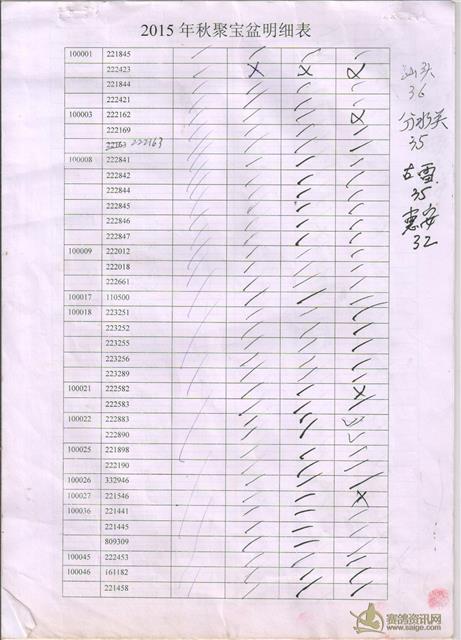 2015 年秋聚宝盆明细表
100001 221845
222423
221844
222421
100003 222162
222169
22163 222163
100008 222841
222842
222844
222845
222846
222847
100009 222012
222018
222661
100017 110500
100018 223251
223252
223255
223256
223289
100021 222582
222583
100022 222883
222890
100025 221898
222190
100026 332946
100027 221546
100036 221441
221445
809309
100045 222453
100046 161182
221458
汕头
36
分水关
35
古雷
35
惠安
32
赛鸽资讯网
www.saige.com